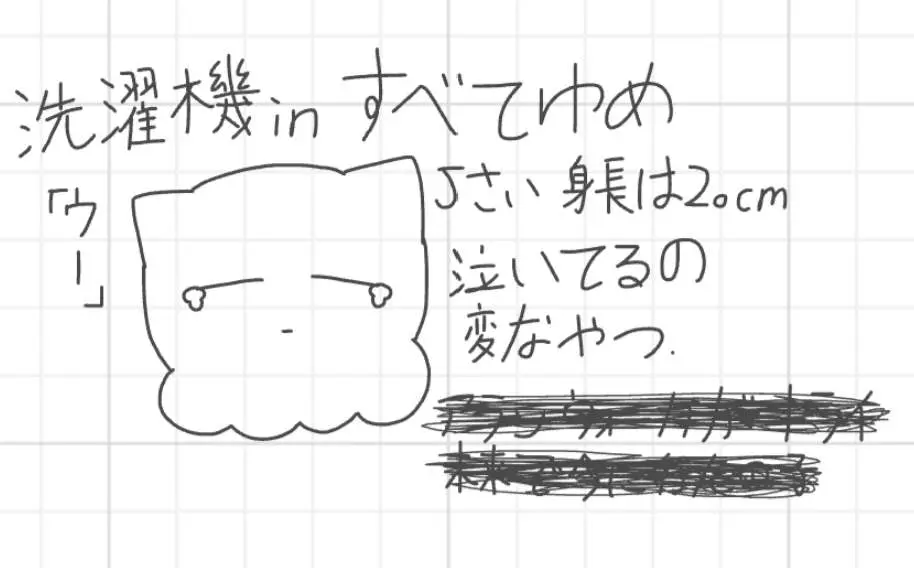 洗濯機in すべてゆめ
「ウー」
5さい 身長は20cm
泣いてるの
変なやつ.